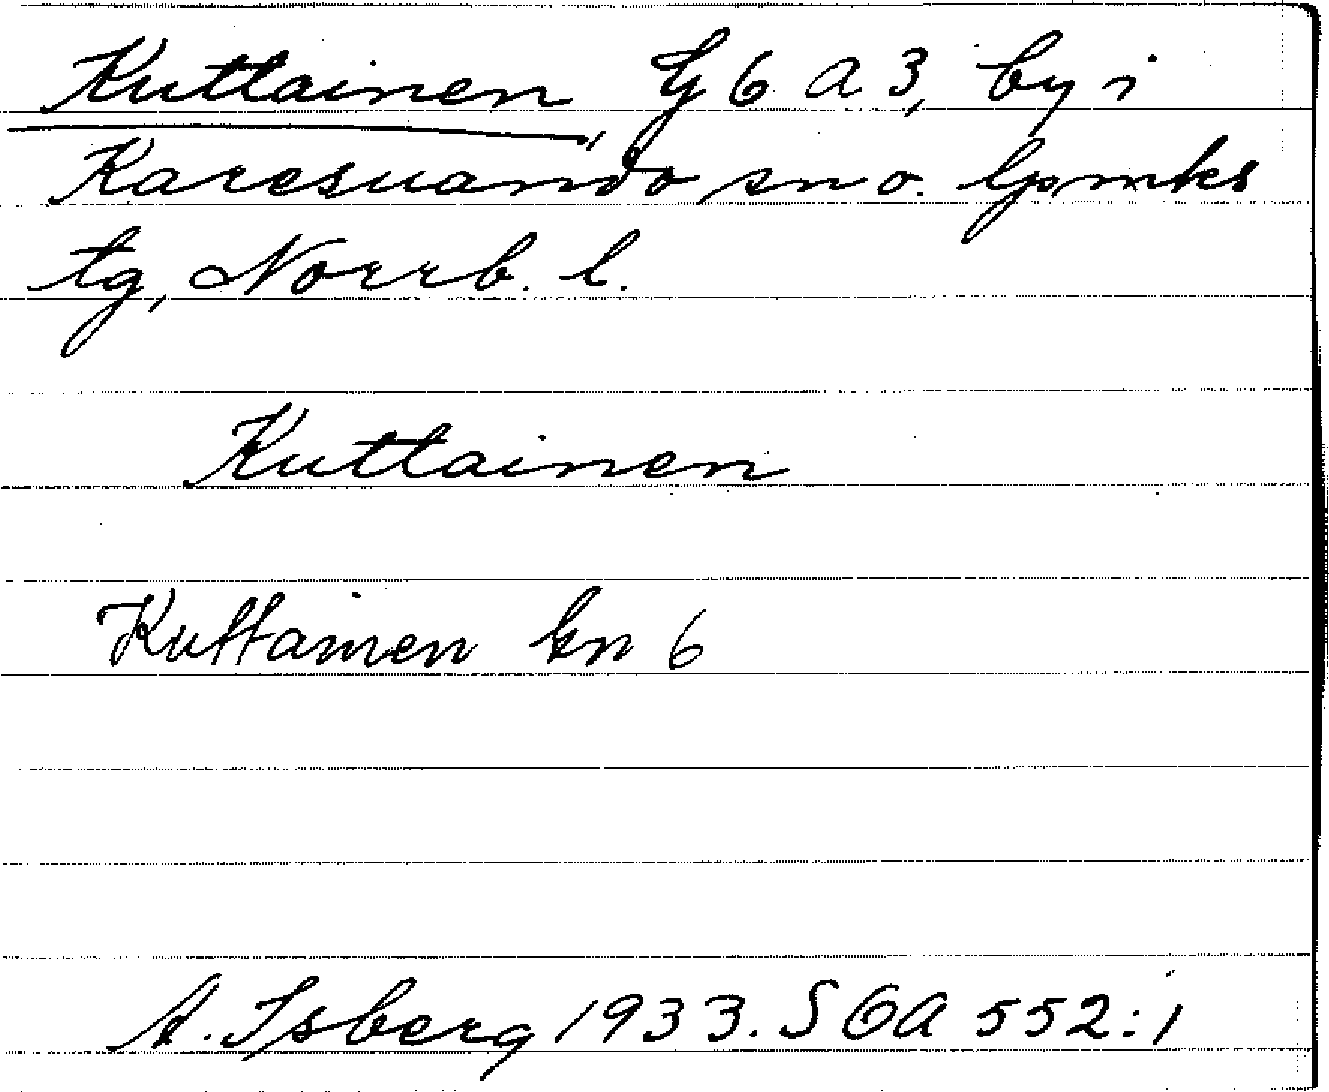 Kuttainen, G 6 A 3, by i
Karesuando sn o. lpmks
tg, Norrb. l.
Kuttainen
Kuttainen Gn 6
A. Isberg 1933. SOA 552:1